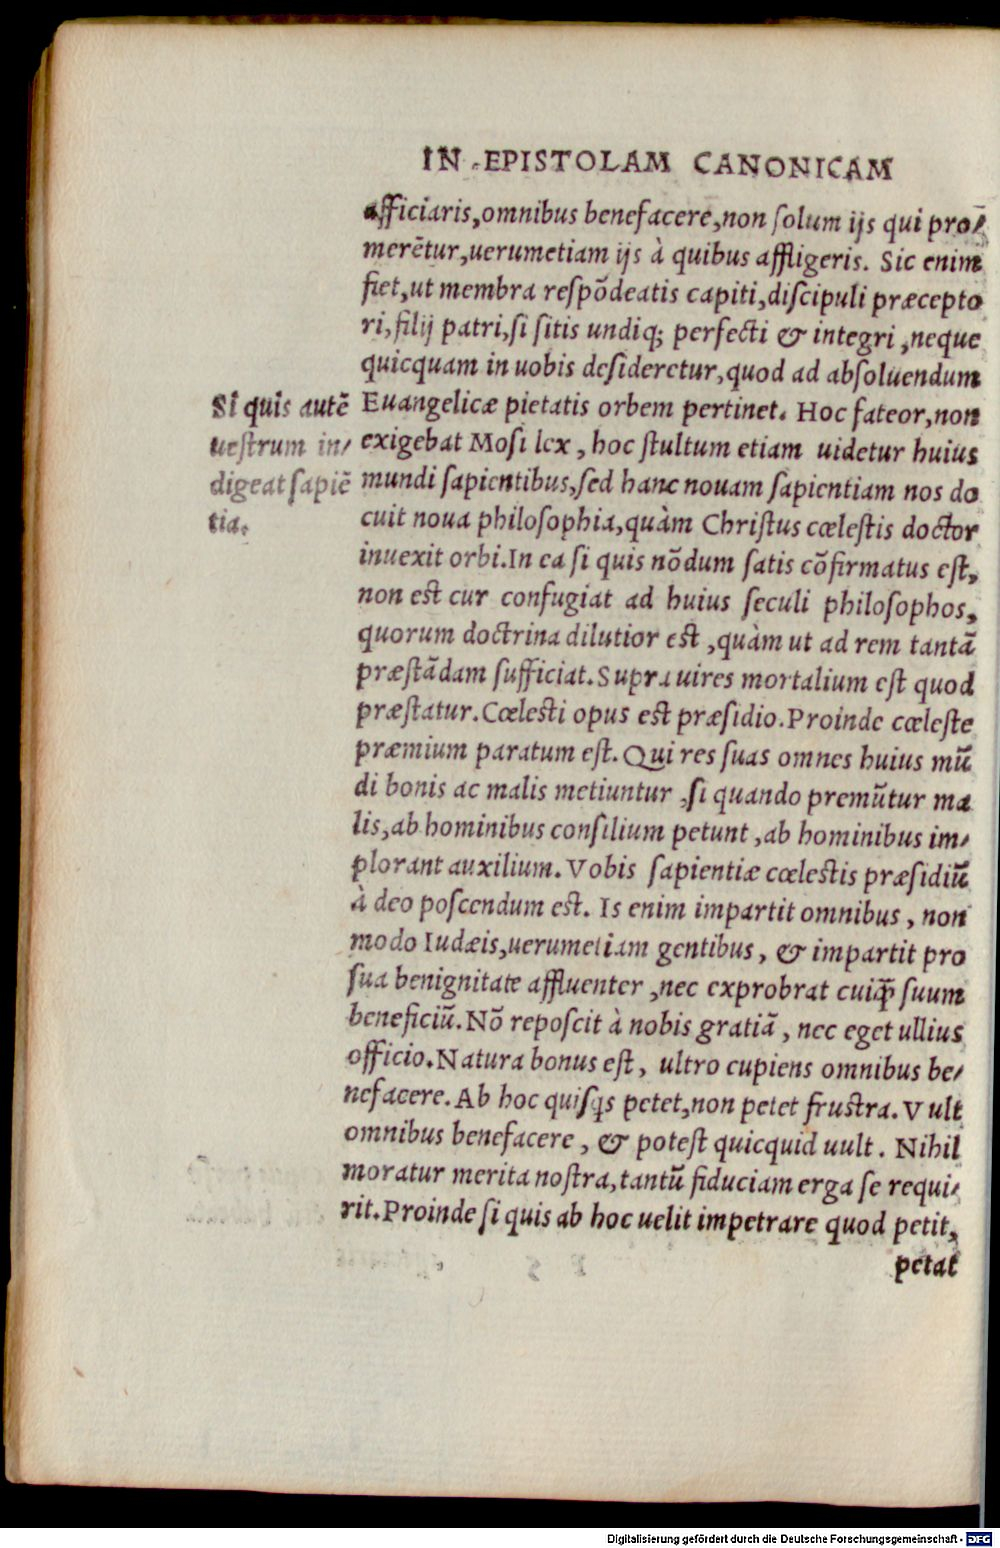 IN EPISTOLAM CANONICAM
afficiaris,omnibus benefacere,non ſolum ijs qui pro⸗
merētur,uerumetiam ijs à quibus affligeris. Sic enim
fiet,ut membra reſpōdeatis capiti,diſcipuli præcepto
ri,filij patri,ſi ſitis undiq; perfecti & integri ,neque
quicquam in uobis deſideretur,quod ad abſoluendum
Euangelicæ pietatis orbem pertinet. Hoc fateor,non
exigebat Moſi lex , hoc ſtultum etiam uidetur huius
mundi ſapientibus,ſed hanc nouam ſapientiam nos do
cuit noua philoſophia,quàm Chriſtus cœleſtis doctor
inuexit orbi.In ea ſi quis nōdum ſatis cōfirmatus eſt,
non eſt cur confugiat ad huius ſeculi philoſophos,
quorum doctrina dilutior eſt ,quàm ut ad rem tantā
præſtādam ſufficiat.Supra uires mortalium eſt quod
præſtatur.Cœleſti opus eſt præſidio.Proinde cœleſte
præmium paratum eſt. Qui res ſuas omnes huius mū
di bonis ac malis metiuntur ,ſi quando premūtur ma
lis,ab hominibus conſilium petunt ,ab hominibus im⸗
plorant auxilium. Vobis ſapientiæ cœleſtis præſidiū
à deo poſcendum eſt. Is enim impartit omnibus , non
modo Iudæis,uerumetiam gentibus , & impartit pro
ſua benignitate affluenter ,nec exprobrat cuiꝙ̃ ſuum
beneficiū.Nō repoſcit à nobis gratiā , nec eget ullius
officio.Natura bonus eſt, ultro cupiens omnibus be⸗
nefacere. Ab hoc quiſꝗs petet,non petet fruſtra. Vult
omnibus benefacere , & poteſt quicquid uult . Nihil
moratur merita noſtra,tantū fiduciam erga ſe requi⸗
rit.Proinde ſi quis ab hoc uelit impetrare quod petit,
petat
Si quis autē
ueſtrum in⸗
digeat ſapiē
tia.
Digitalisierung gefördert durch die Deutsche Forschungsgemeinschaft - DFG